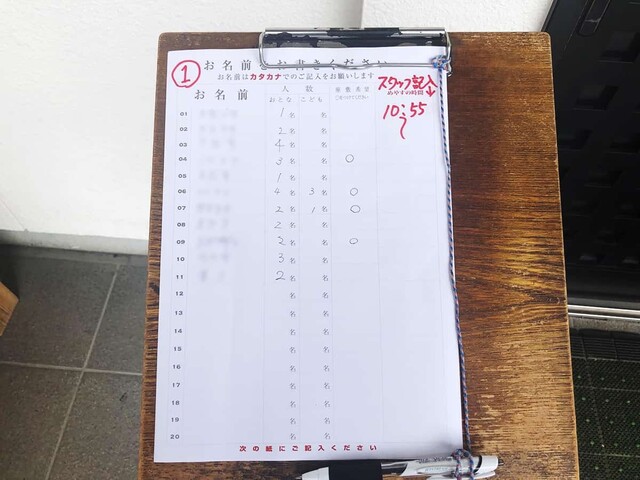 ① お名前 お書きください
お名前はカタカナでのご記入をお願いします
スタッフ記入↓
めやすの時間
お名前 人数
おとな こども
10:55
01 1名 名
02 2名 名
03 4名 名
04 3名 名 ○
05 1名 名
06 4名 3名 ○
07 2名 1名 ○
08 2名 名
09 2名 名 ○
10 3名 名
11 2名 名
12 名 名
13 名 名
14 名 名
15 名 名
16 名 名
17 名 名
18 名 名
19 名 名
20 名 名
次の紙にご記入ください